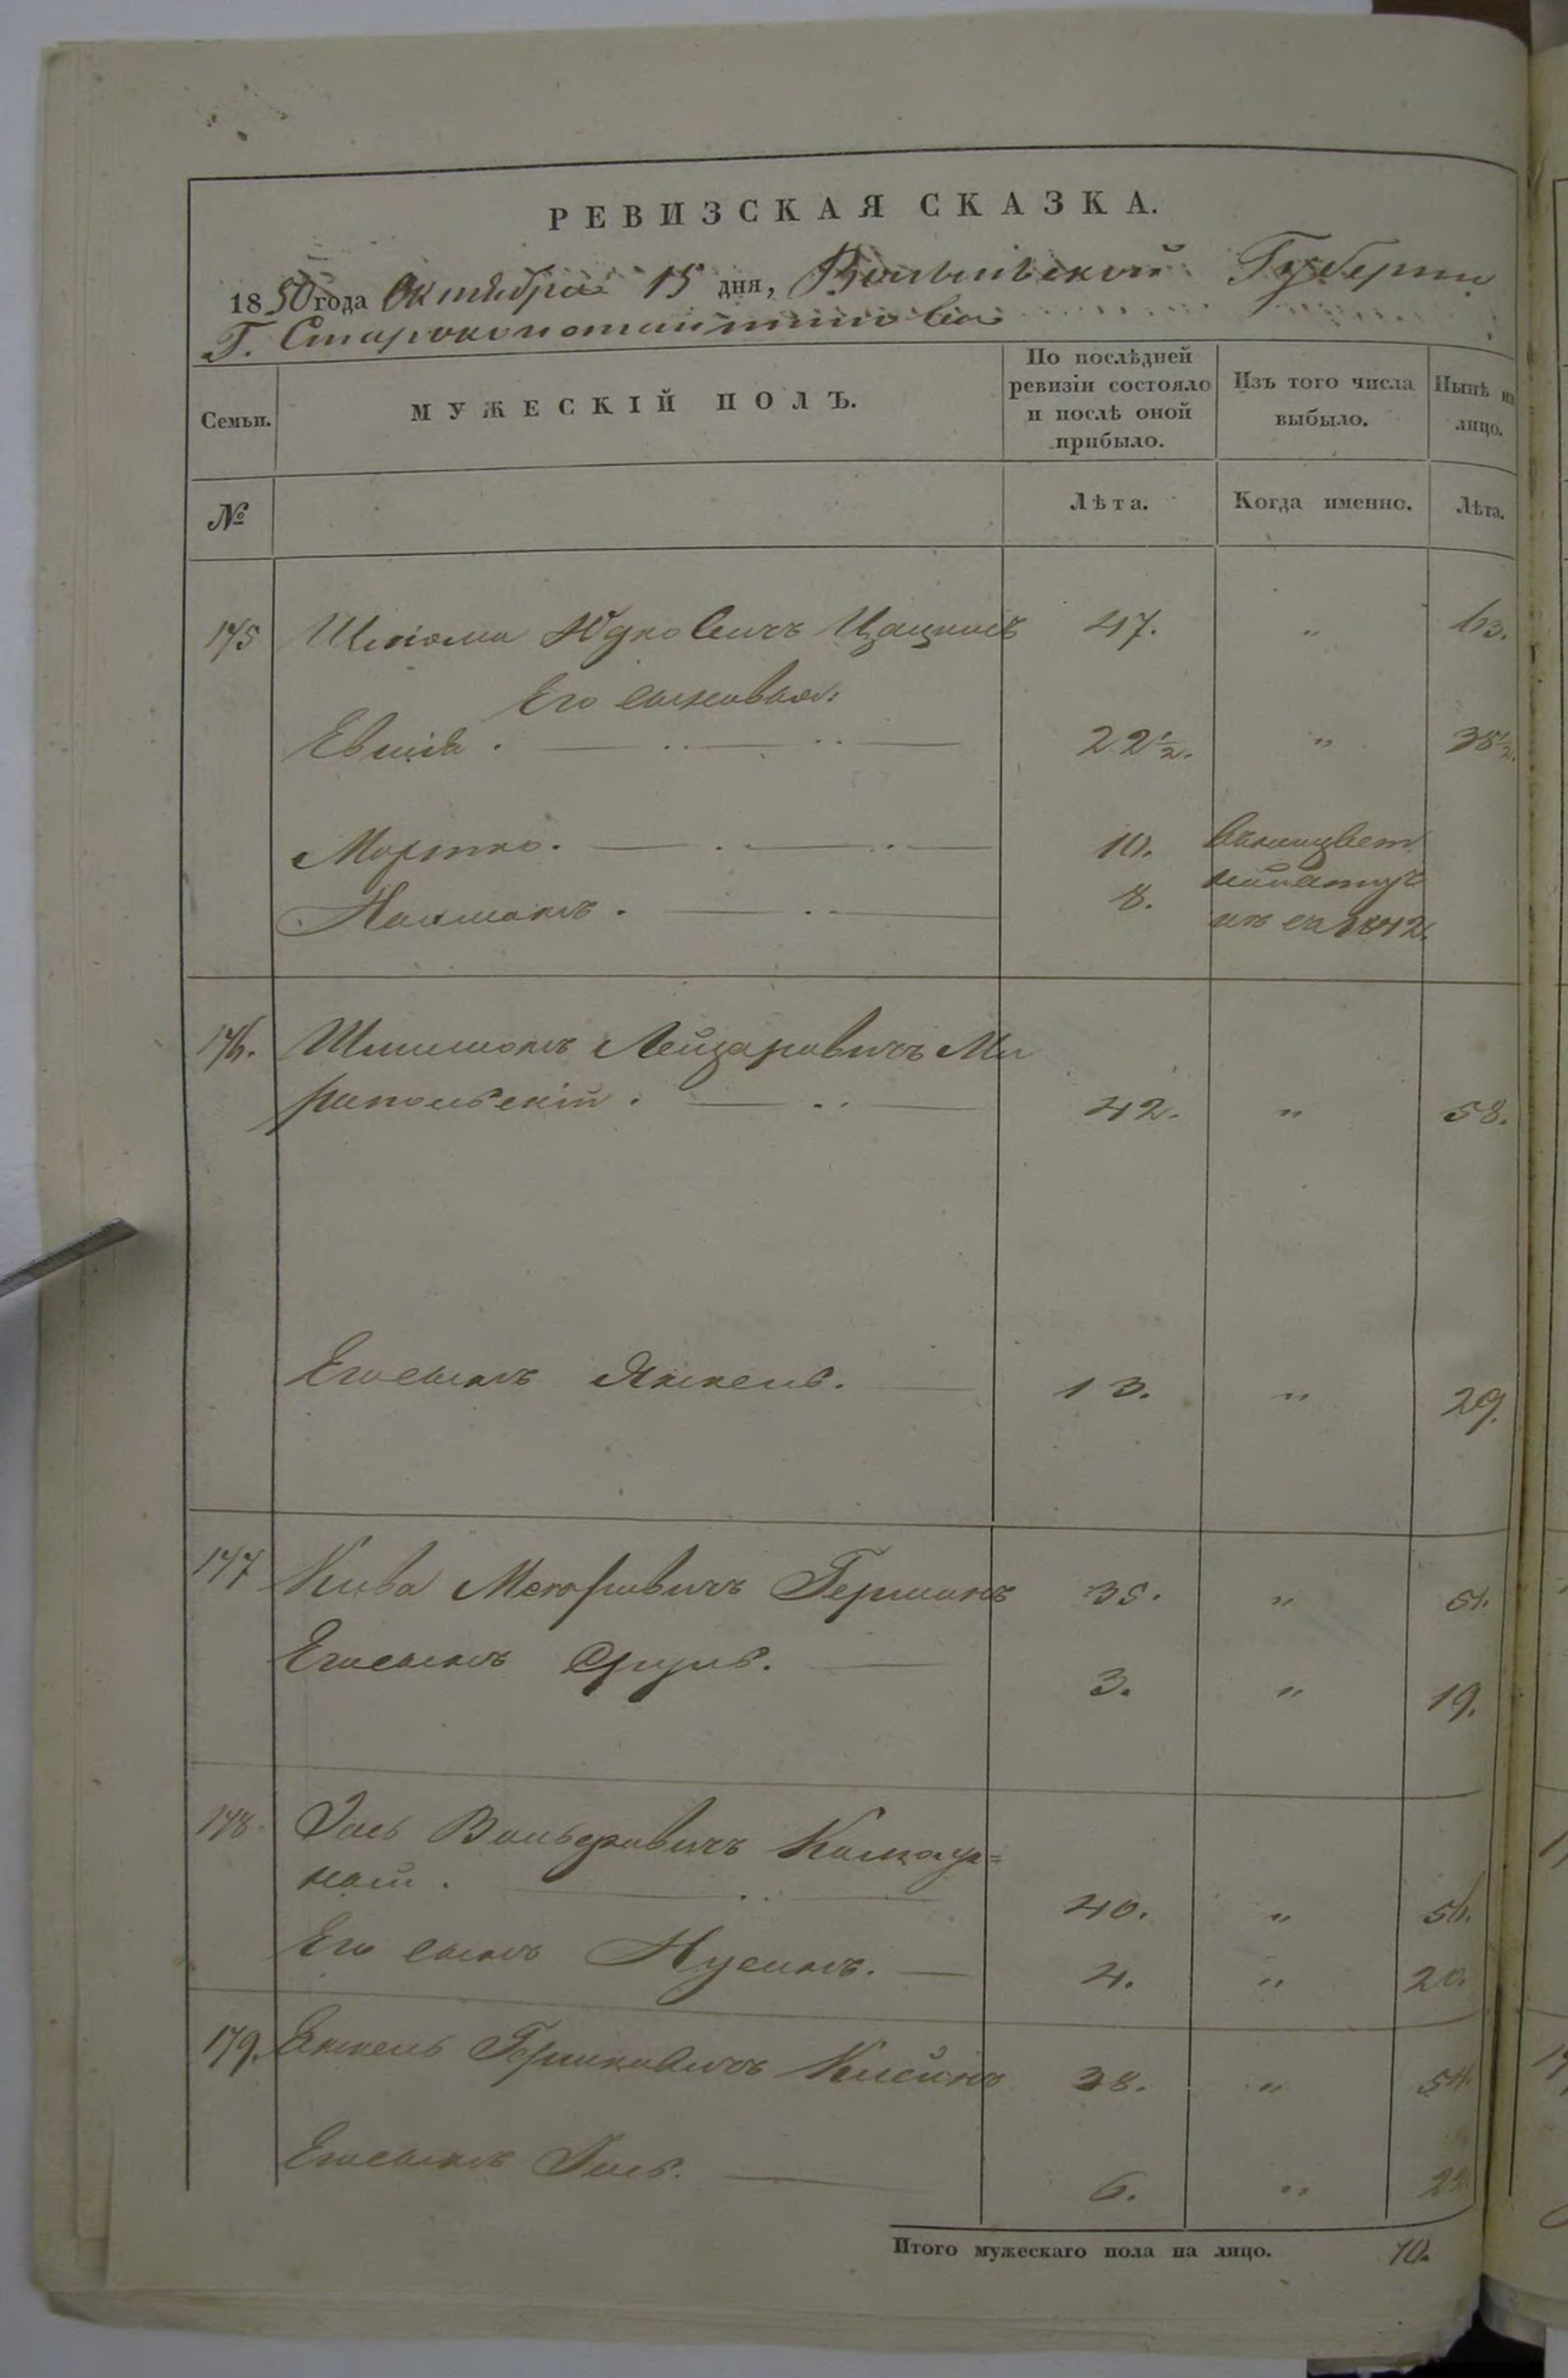 РЕВИЗСКАЯ СКАЗКА.
1850 года Октября 15 дня, Волынской Губернии
Г. Староконстантинова
Семьи. МУЖЕСКІЙ ПОЛЪ. По послѣдней ревизіи состояло и послѣ оной прибыло. Изъ того числа выбыло. Нынѣ на лицо.
№ Лѣта. Когда именно. Лѣта.
175 Шліома Юдковичъ Цацкисъ 47. " 63.
Его сыновья:
22½. " 38½.
Мортко. 10.
Нахманъ. 8. 1842.
176. Шлиомъ Лейзаровичъ Ми
ропольскій. 42. " 58.
Его сынъ Янкель. 13. " 29.
177 Кива Мехоровичъ Германъ 35. " 51.
Его сынъ Сруль. 3. " 19.
178. Іось Вольфовичъ
ный. 40. " 56.
Его сынъ Нусинъ. 4. " 20.
179. Янкель Гершковичъ Клейнъ 38. " 54.
Его сынъ Іось. 6. " 22.
Итого мужескаго пола на лицо. 10.